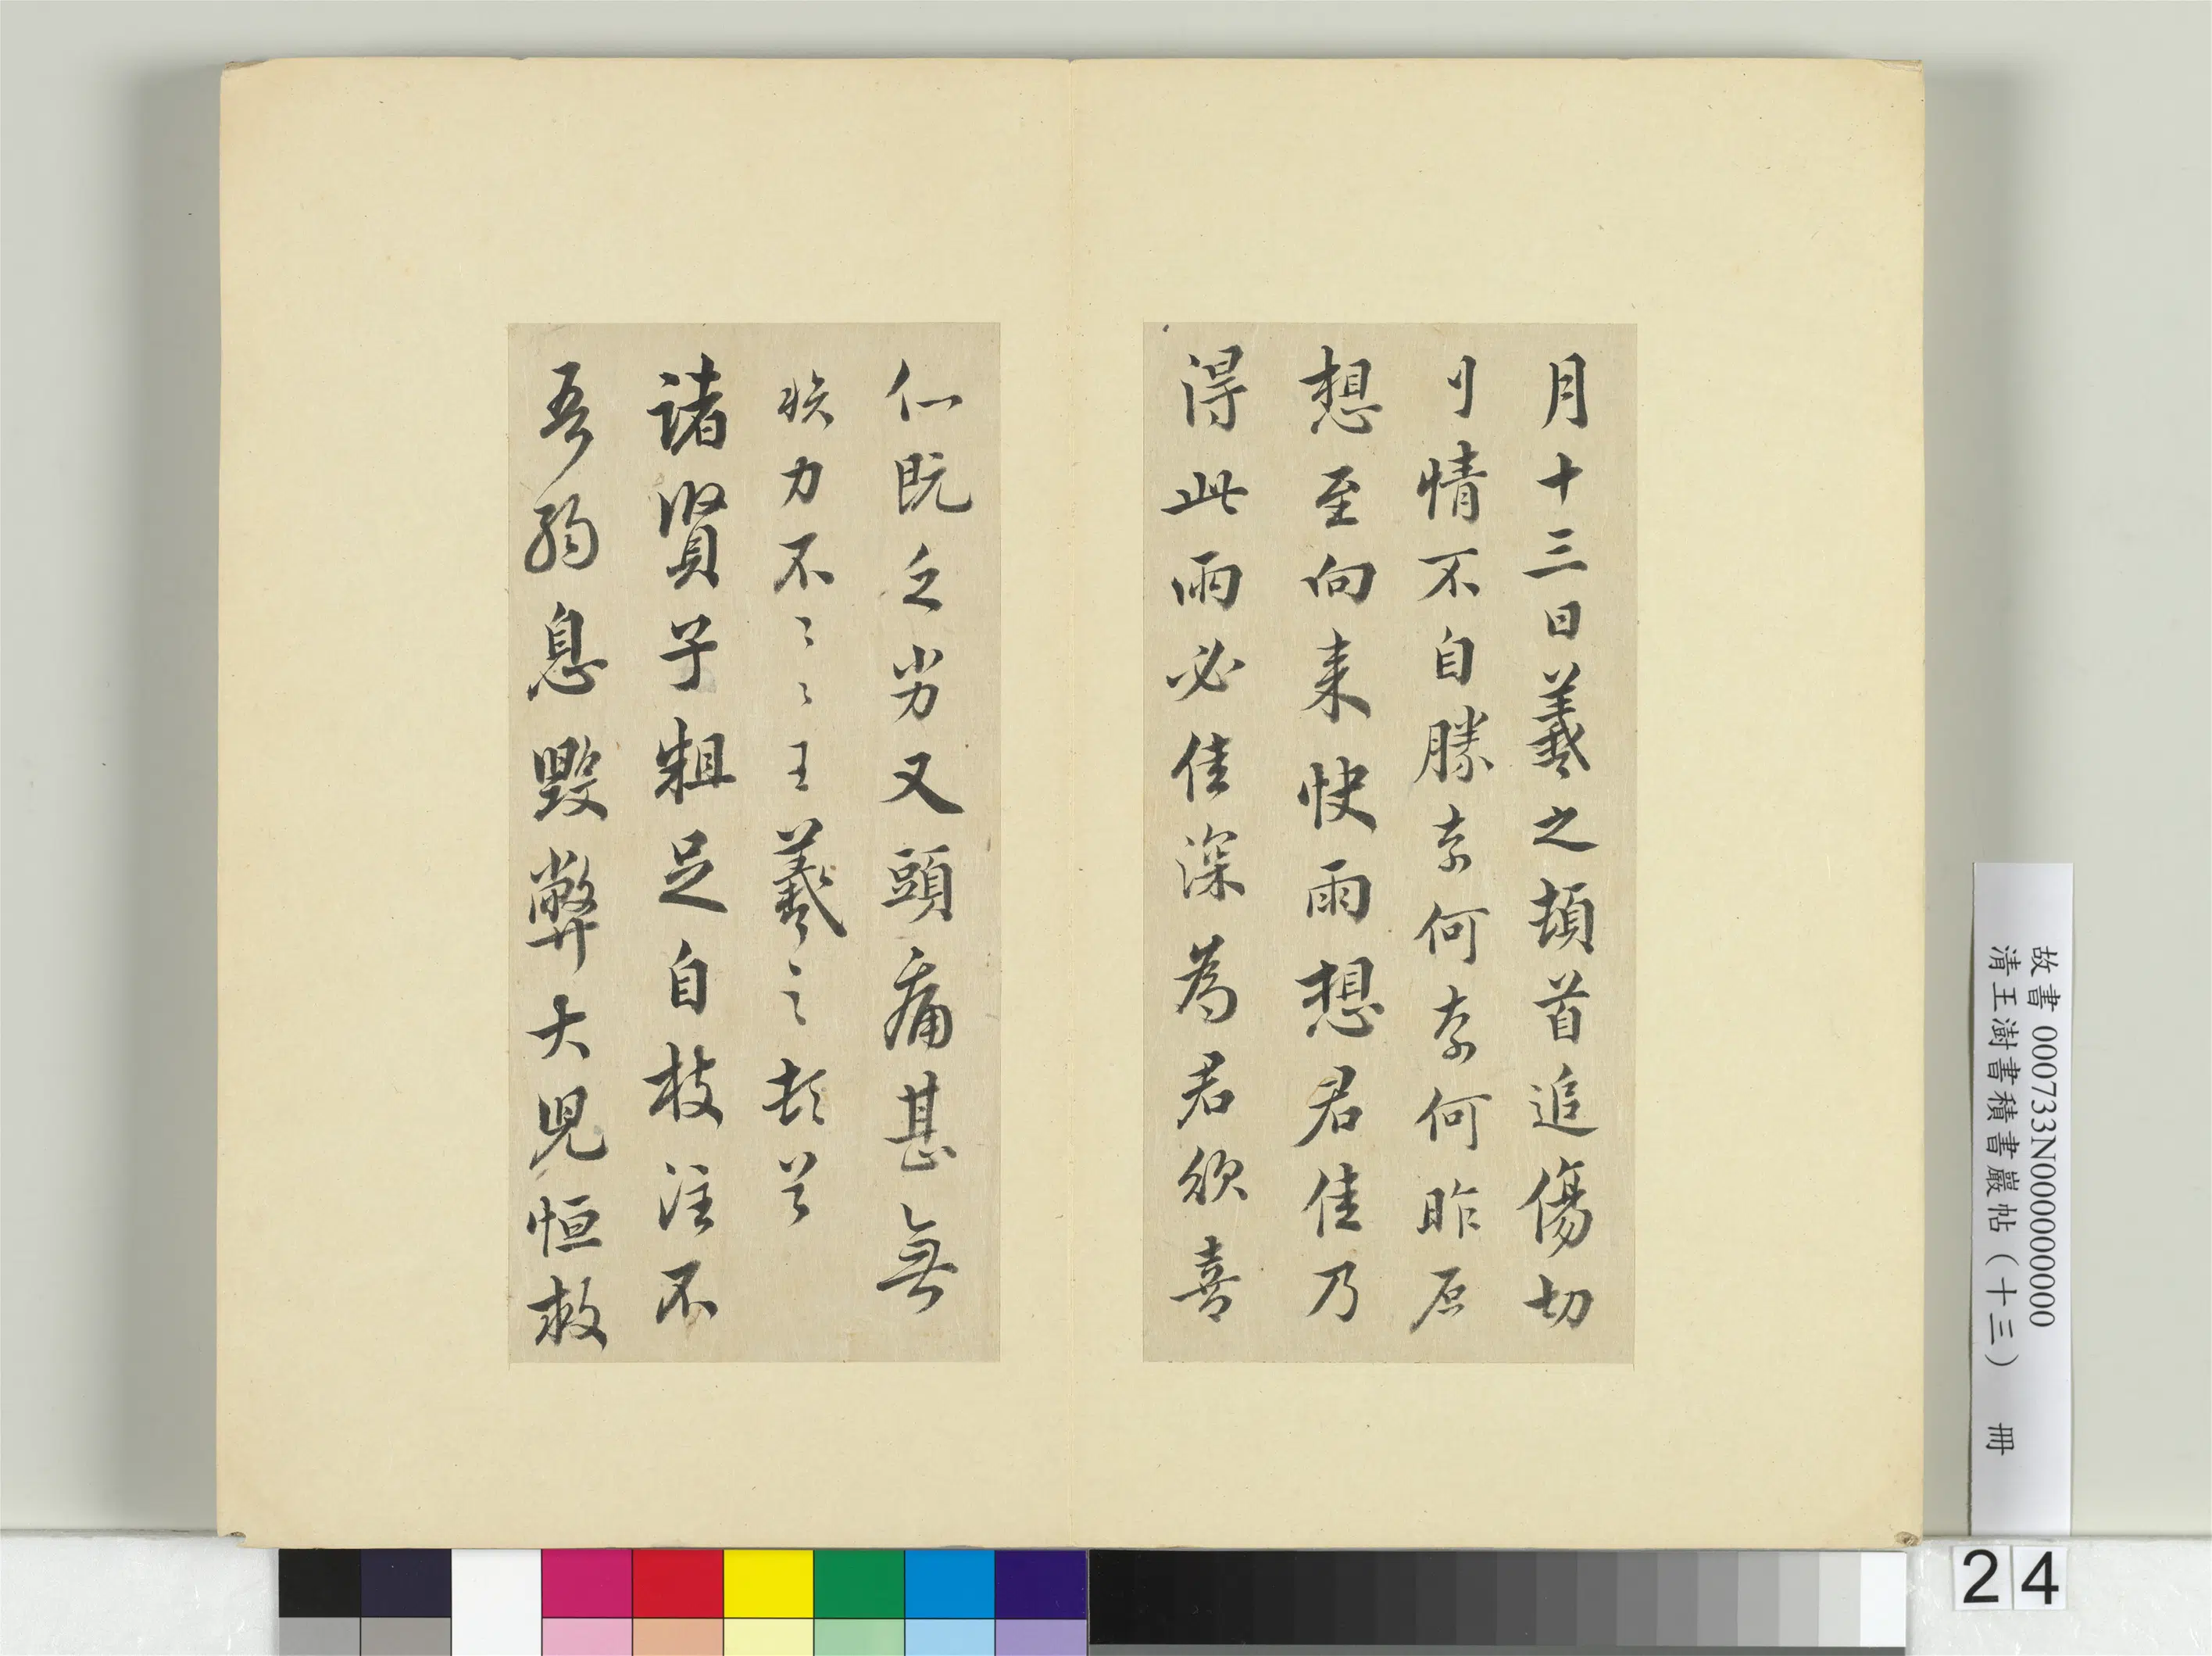 月十三日羲之頓首追傷切
刂情不自勝奈何奈何昨
想至向来快雨想君佳乃
得此雨必佳深為君欣喜
仁既乏劣又頭痛甚無
力不〻〻王羲之頓首
諸賢子粗足自枝注不
吾弱息毀弊大児恒救
故書 000733N000000000
清王澍書積書巖帖（十三） 冊
24